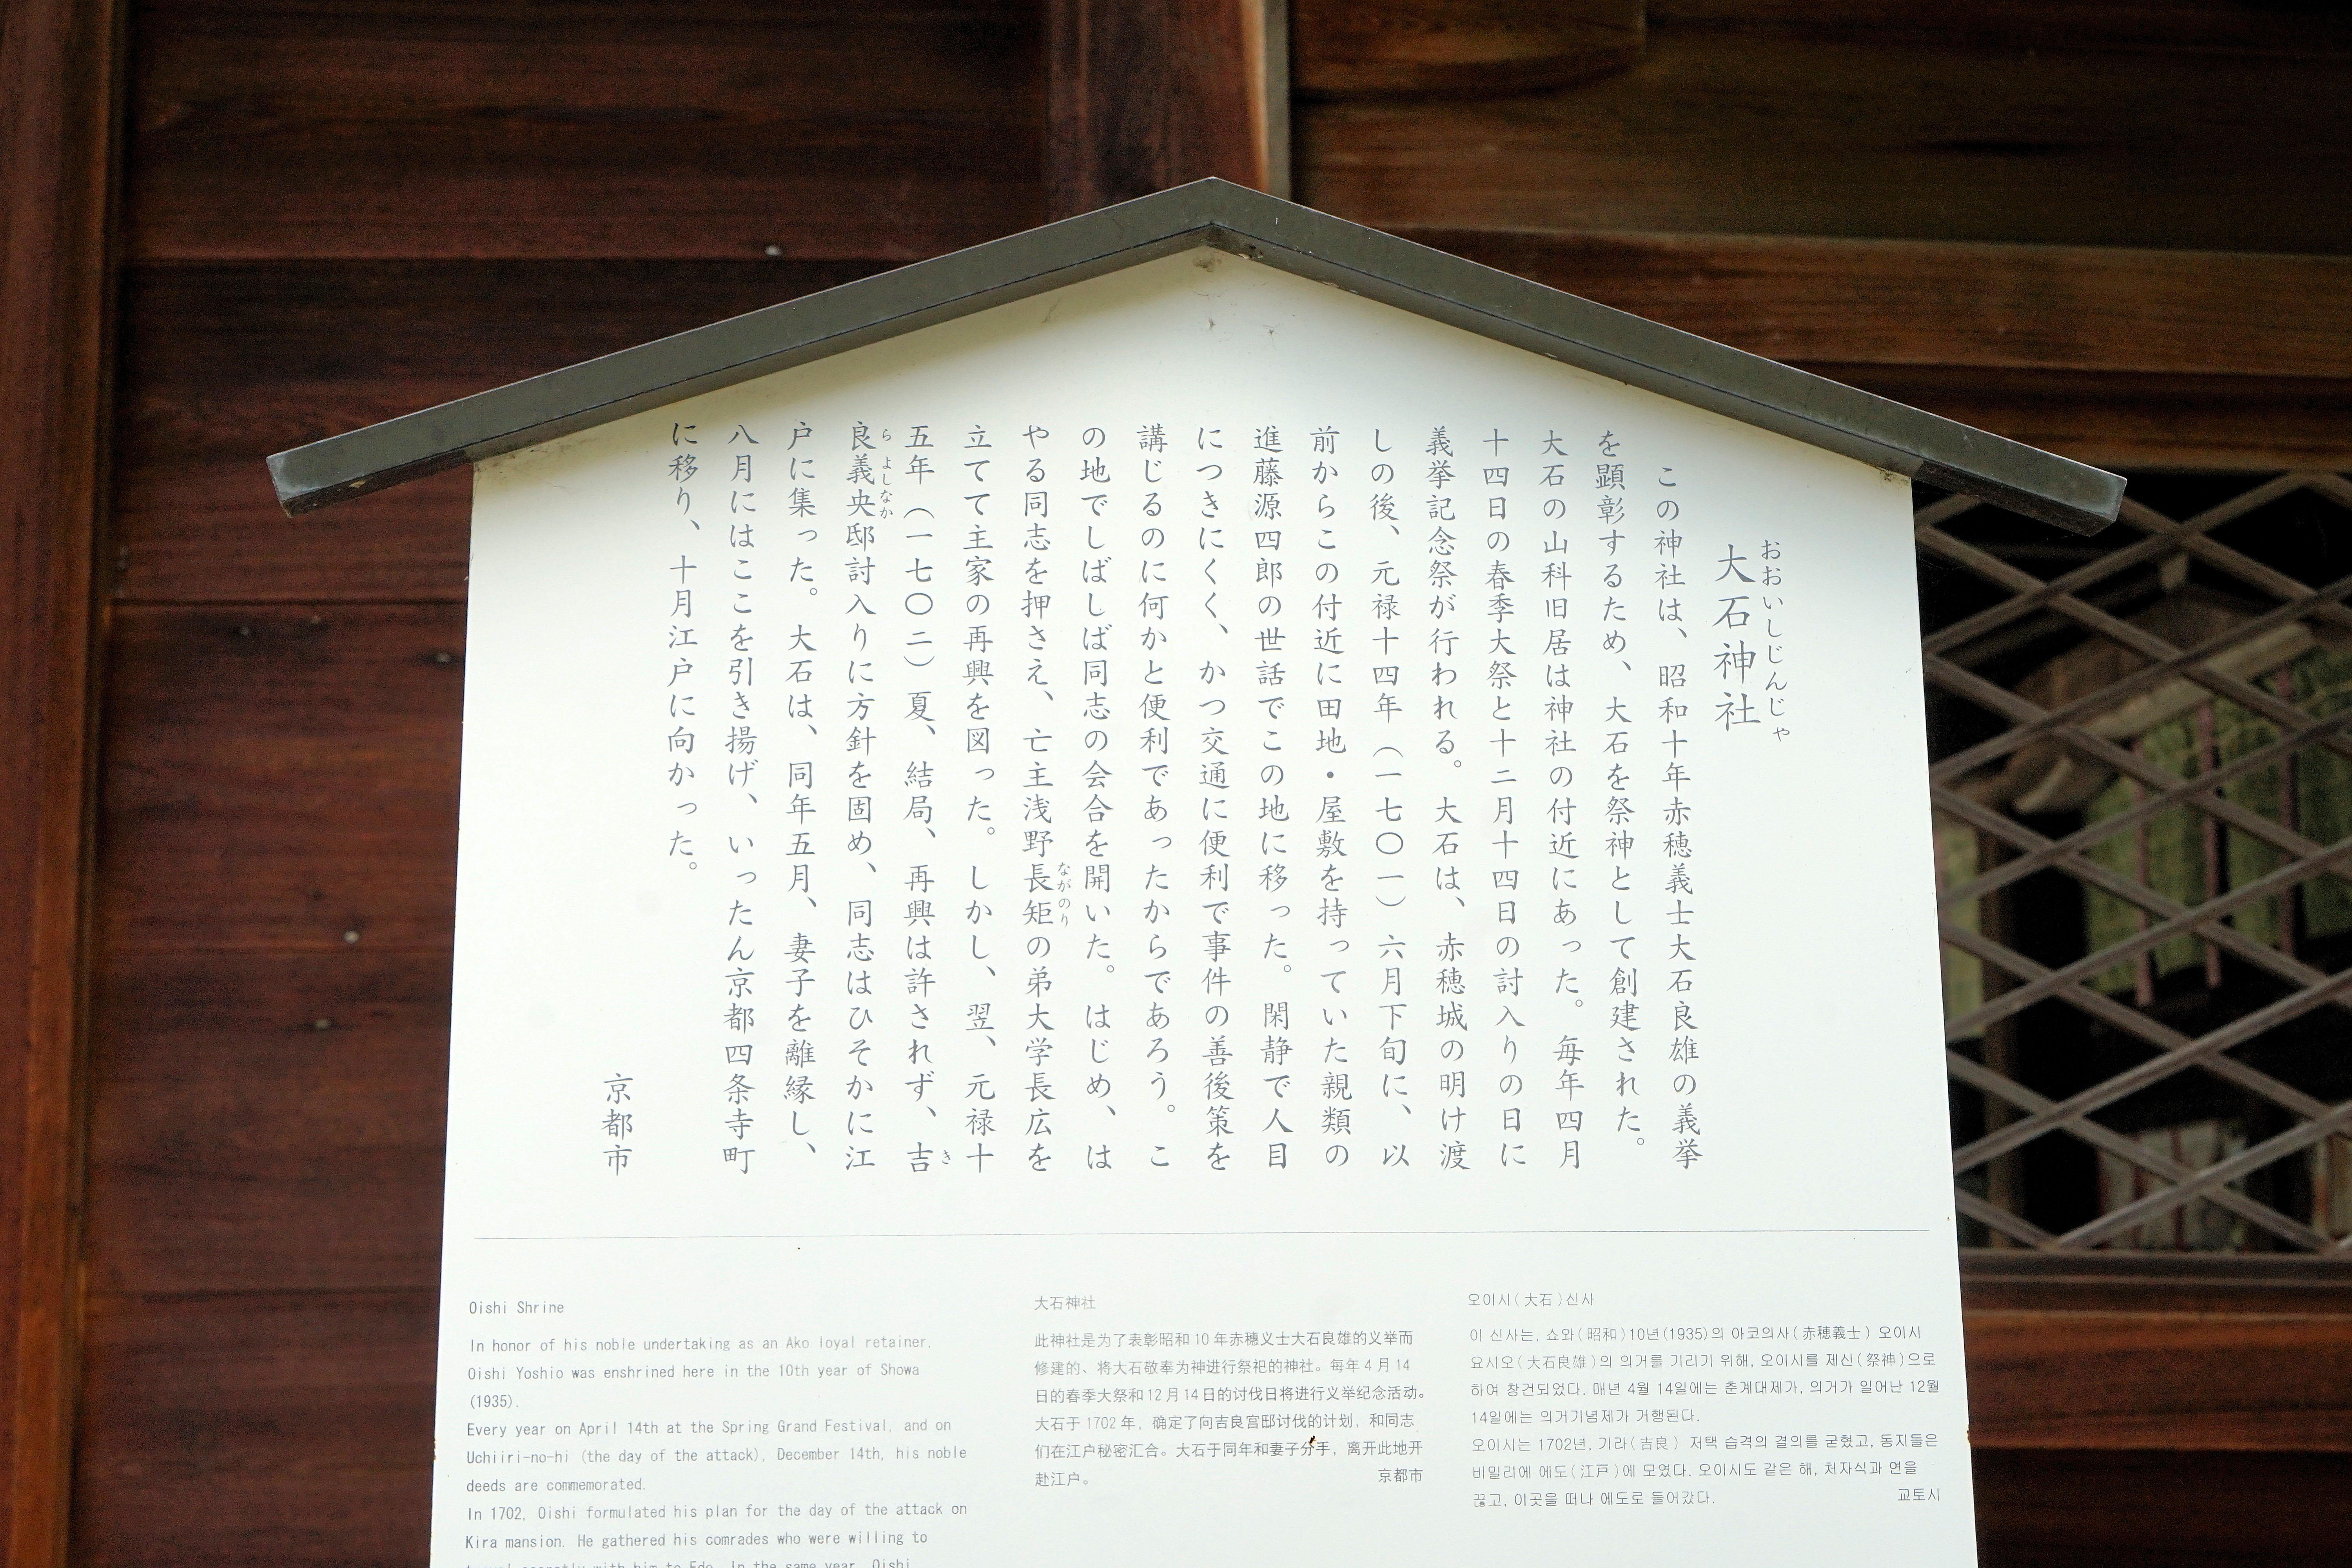 おおいしじんじゃ
大石神社
この神社は、昭和十年赤穂義士大石良雄の義挙
を顕彰するため、大石を祭神として創建された。
大石の山科旧居は神社の付近にあった。毎年四月
十四日の春季大祭と十二月十四日の討入りの日に
義挙記念祭が行われる。大石は、赤穂城の明け渡
しの後、元禄十四年（一七〇一）六月下旬に、以
前からこの付近に田地・屋敷を持っていた親類の
進藤源四郎の世話でこの地に移った。閑静で人目
につきにくく、かつ交通に便利で事件の善後策を
講じるのに何かと便利であったからであろう。こ
の地でしばしば同志の会合を開いた。はじめ、は
やる同志を押さえ、亡主浅野長矩の弟大学長広を
ながのり
立てて主家の再興を図った。しかし、翌、元禄十
五年（一七〇二）夏、結局、再興は許されず、吉
き
良義央邸討入りに方針を固め、同志はひそかに江
ら よしなか
戸に集った。大石は、同年五月、妻子を離縁し、
八月にはここを引き揚げ、いったん京都四条寺町
に移り、十月江戸に向かった。
京都市
Oishi Shrine
In honor of his noble undertaking as an Ako loyal retainer,
Oishi Yoshio was enshrined here in the 10th year of Showa
(1935).
Every year on April 14th at the Spring Grand Festival, and on
Uchiiri-no-hi (the day of the attack), December 14th, his noble
deeds are commemorated.
In 1702, Oishi formulated his plan for the day of the attack on
Kira mansion. He gathered his comrades who were willing to
travel secretly with him to Edo. In the same year, Oishi
大石神社
此神社是为了表彰昭和10年赤穗义士大石良雄的义举而
修建的、将大石敬奉为神进行祭祀的神社。每年4月14
日的春季大祭和12月14日的讨伐日将进行义举纪念活动。
大石于1702年，确定了向吉良宫邸讨伐的计划，和同志
们在江户秘密汇合。大石于同年和妻子分手，离开此地开
赴江户。
京都市
오이시(大石)신사
이 신사는, 쇼와(昭和)10년(1935)의 아코의사(赤穂義士) 오이시
요시오(大石良雄)의 의거를 기리기 위해, 오이시를 제신(祭神)으로
하여 창건되었다. 매년 4월 14일에는 춘계대제가, 의거가 일어난 12월
14일에는 의거기념제가 거행된다.
오이시는 1702년, 기라(吉良) 저택 습격의 결의를 굳혔고, 동지들은
비밀리에 에도(江戸)에 모였다. 오이시도 같은 해, 처자식과 연을
끊고, 이곳을 떠나 에도로 들어갔다.
교토시